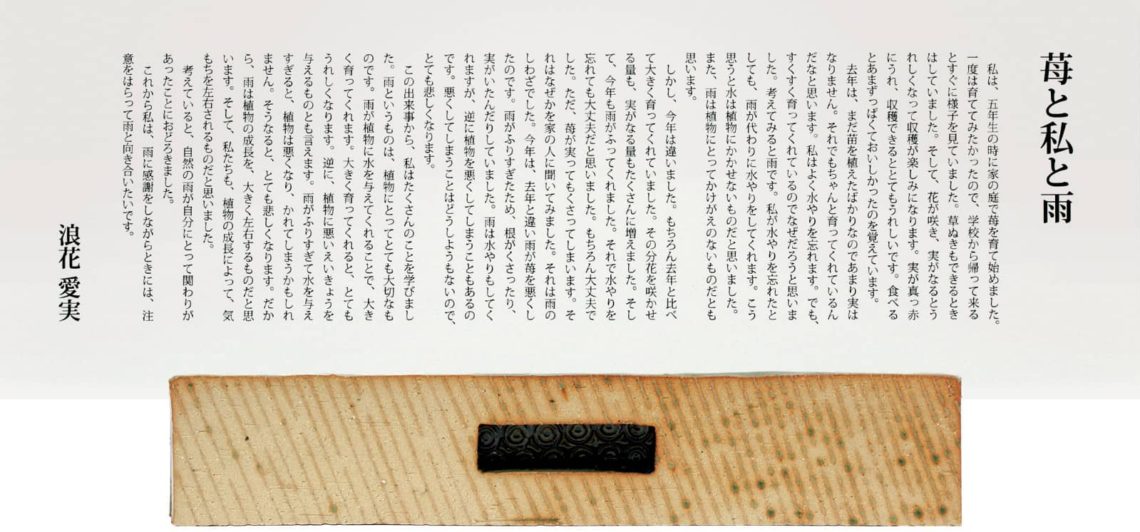 苺と私と雨
　私は、五年生の時に家の庭で苺を育て始めました。
一度は育ててみたかったので、学校から帰って来る
とすぐに様子を見ていました。草ぬきもできるとき
はしていました。そして、花が咲き、実がなるとう
れしくなって収穫が楽しみになります。実が真っ赤
にうれ、収穫できるととてもうれしいです。食べる
とあまずっぱくておいしかったのを覚えています。
　去年は、まだ苗を植えたばかりなのであまり実は
なりません。それでもちゃんと育ってくれているん
だなと思います。私はよく水やりを忘れます。でも、
すくすく育ってくれているのでなぜだろうと思いま
した。考えてみると雨です。私が水やりを忘れたと
しても、雨が代わりに水やりをしてくれます。こう
思うと水は植物にかかせないものだと思いました。
また、雨は植物にとってかけがえのないものだとも
思います。
　しかし、今年は違いました。もちろん去年と比べ
て大きく育ってくれていました。その分花を咲かせ
る量も、実がなる量もたくさんに増えました。そし
て、今年も雨がふってくれました。それで水やりを
忘れても大丈夫だと思いました。もちろん大丈夫で
した。ただ、苺が実ってもくさってしまいます。そ
れはなぜかを家の人に聞いてみました。それは雨の
しわざでした。今年は、去年と違い雨が苺を悪くし
たのです。雨がふりすぎたため、根がくさったり、
実がいたんだりしていました。雨は水やりもしてく
れますが、逆に植物を悪くしてしまうこともあるの
です。悪くしてしまうことはどうしようもないので、
とても悲しくなります。
　この出来事から、私はたくさんのことを学びまし
た。雨というものは、植物にとってとても大切なも
のです。雨が植物に水を与えてくれることで、大き
く育ってくれます。大きく育ってくれると、とても
うれしくなります。逆に、植物に悪いえいきょうを
与えるものとも言えます。雨がふりすぎて水を与え
すぎると、植物は悪くなり、かれてしまうかもしれ
ません。そうなると、とても悲しくなります。だか
ら、雨は植物の成長を、大きく左右するものだと思
います。そして、私たちも、植物の成長によって、気
もちを左右されるものだと思いました。
　考えていると、自然の雨が自分にとって関わりが
あったことにおどろきました。
　これから私は、雨に感謝をしながらときには、注
意をはらって雨と向き合いたいです。
浪花 愛実